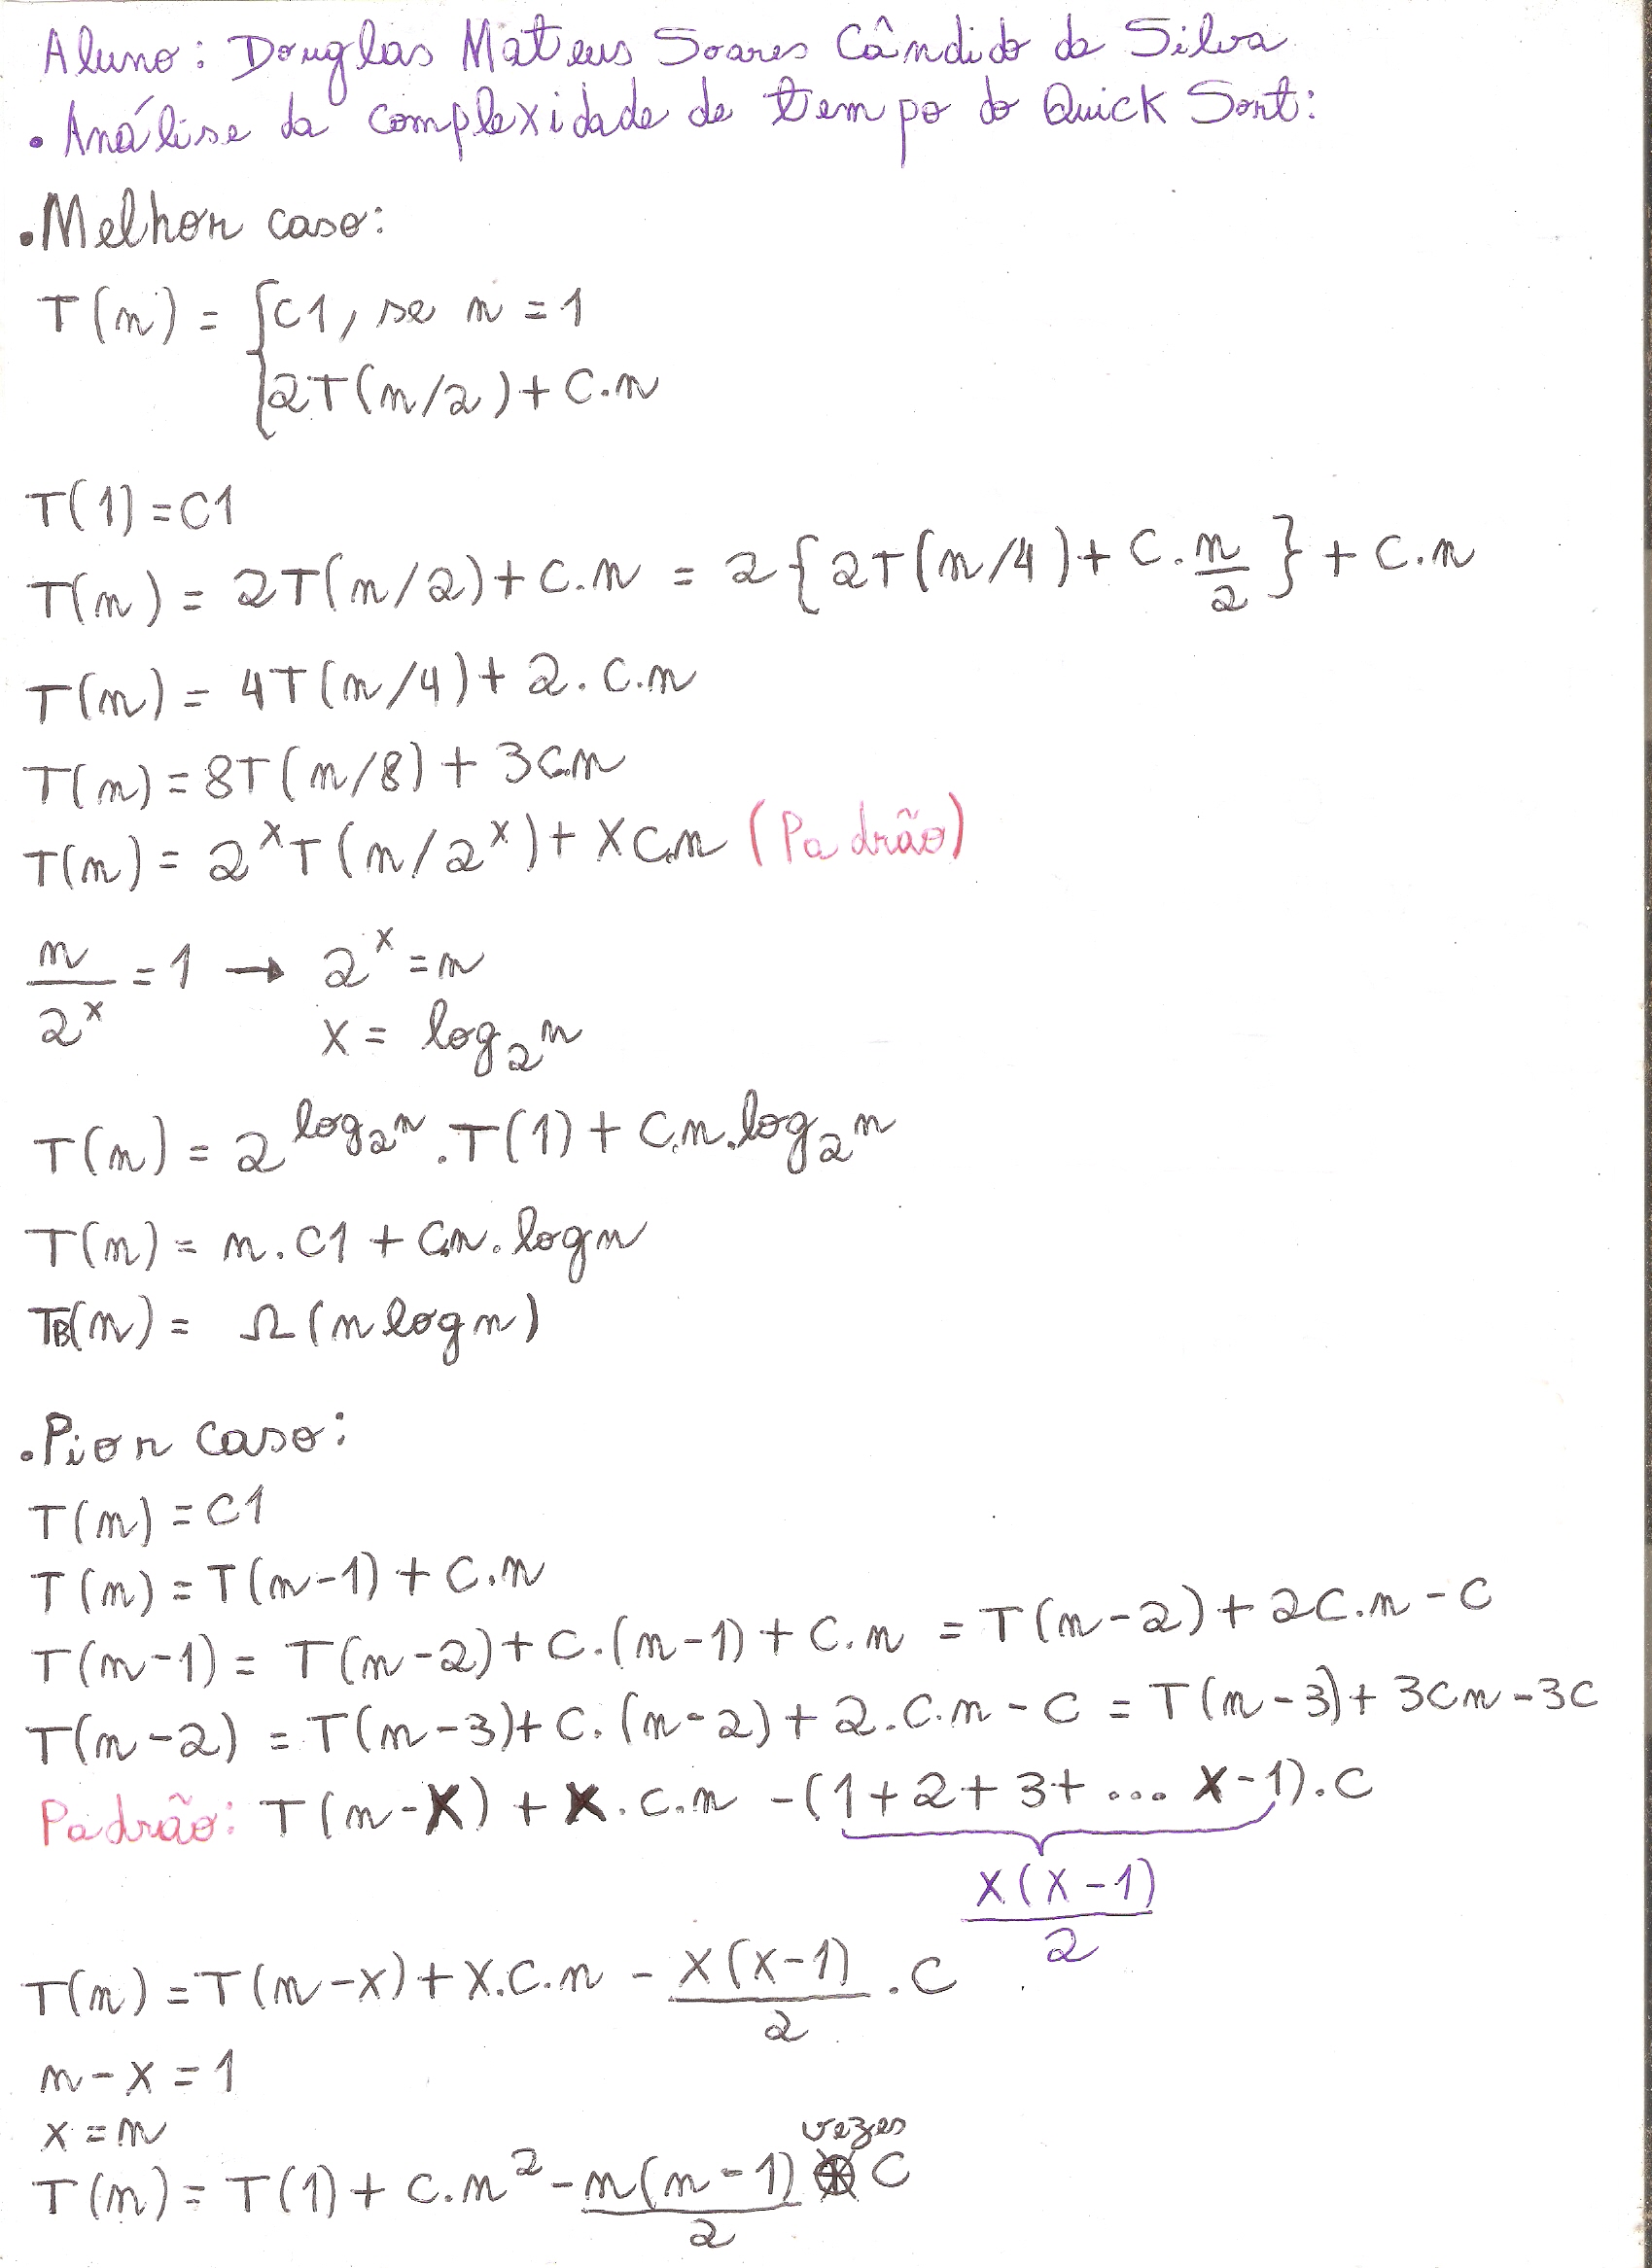 Aluno: Douglas Mateus Soares Cândido da Silva
• Análise da complexidade de tempo do Quick Sort:
• Melhor caso:
T(n) = { C1, se n = 1
{ 2T(n/2) + C.n
T(1) = C1
T(n) = 2T(n/2) + C.n = 2{2T(n/4) + C.n/2} + C.n
T(n) = 4T(n/4) + 2.C.n
T(n) = 8T(n/8) + 3C.n
T(n) = 2^x T(n/2^x) + XC.n (Padrão)
n/2^x = 1 → 2^x = n
x = log₂n
T(n) = 2^(log₂n) . T(1) + C.n.log₂n
T(n) = n.C1 + C.n.logn
TB(n) = Ω(nlogn)
• Pior caso:
T(n) = C1
T(n) = T(n-1) + C.n
T(n-1) = T(n-2) + C.(n-1) + C.n = T(n-2) + 2C.n - C
T(n-2) = T(n-3) + C.(n-2) + 2.C.n - C = T(n-3) + 3Cn - 3C
Padrão: T(n-X) + X.C.n - (1+2+3+... X-1).C
X(X-1)/2
T(n) = T(n-X) + X.C.n - X(X-1)/2 . C
n - X = 1
X = n
vezes
T(n) = T(1) + C.n² - n(n-1)/2 * C